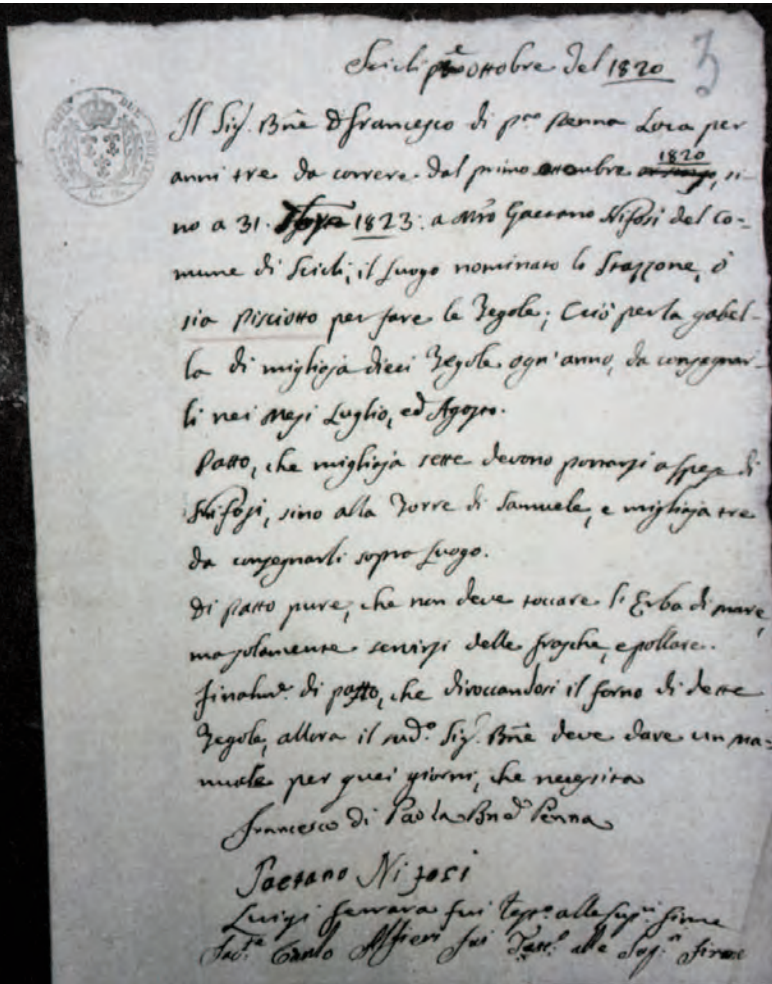 Scicli ottobre del 1820
3
Il Sig.r Bne D Francesco di P.la Penna Loca per
anni tre da correre dal primo ottembre 1820, si=
no a 31. 1823: a Mro Gaetano Nifosi del co=
mune di Scicli, il luogo nominato lo Stazzone, ò
sia Pisciotto per fare le Tegole; Ciò per la gabel=
la di migliaja dieci Tegole ogn' anno, da consegnar=
li nei Mesi Luglio, ed Agosto.
Patto, che migliaja sette devono portarsi a spese di
Nifosi, sino alla Torre di Samuele, e migliaja tre
da consegnarli sopra luogo.
Di patto pure, che non deve toccare l' Erba di mare,
ma solamente servirsi delle frasche, e pollare.
Finalm.e di patto, che diroccandosi il forno di dette
Tegole, allora il sud.o Sig.r Bne deve dare un ma=
nuale per quei giorni, che necessita
Francesco di Paola Bne Penna
Gaetano Nifosi
Luigi Ferrara fui Test.o alle Sup.i firme
Carlo Alfieri fui Test.o alle Sop.i firme